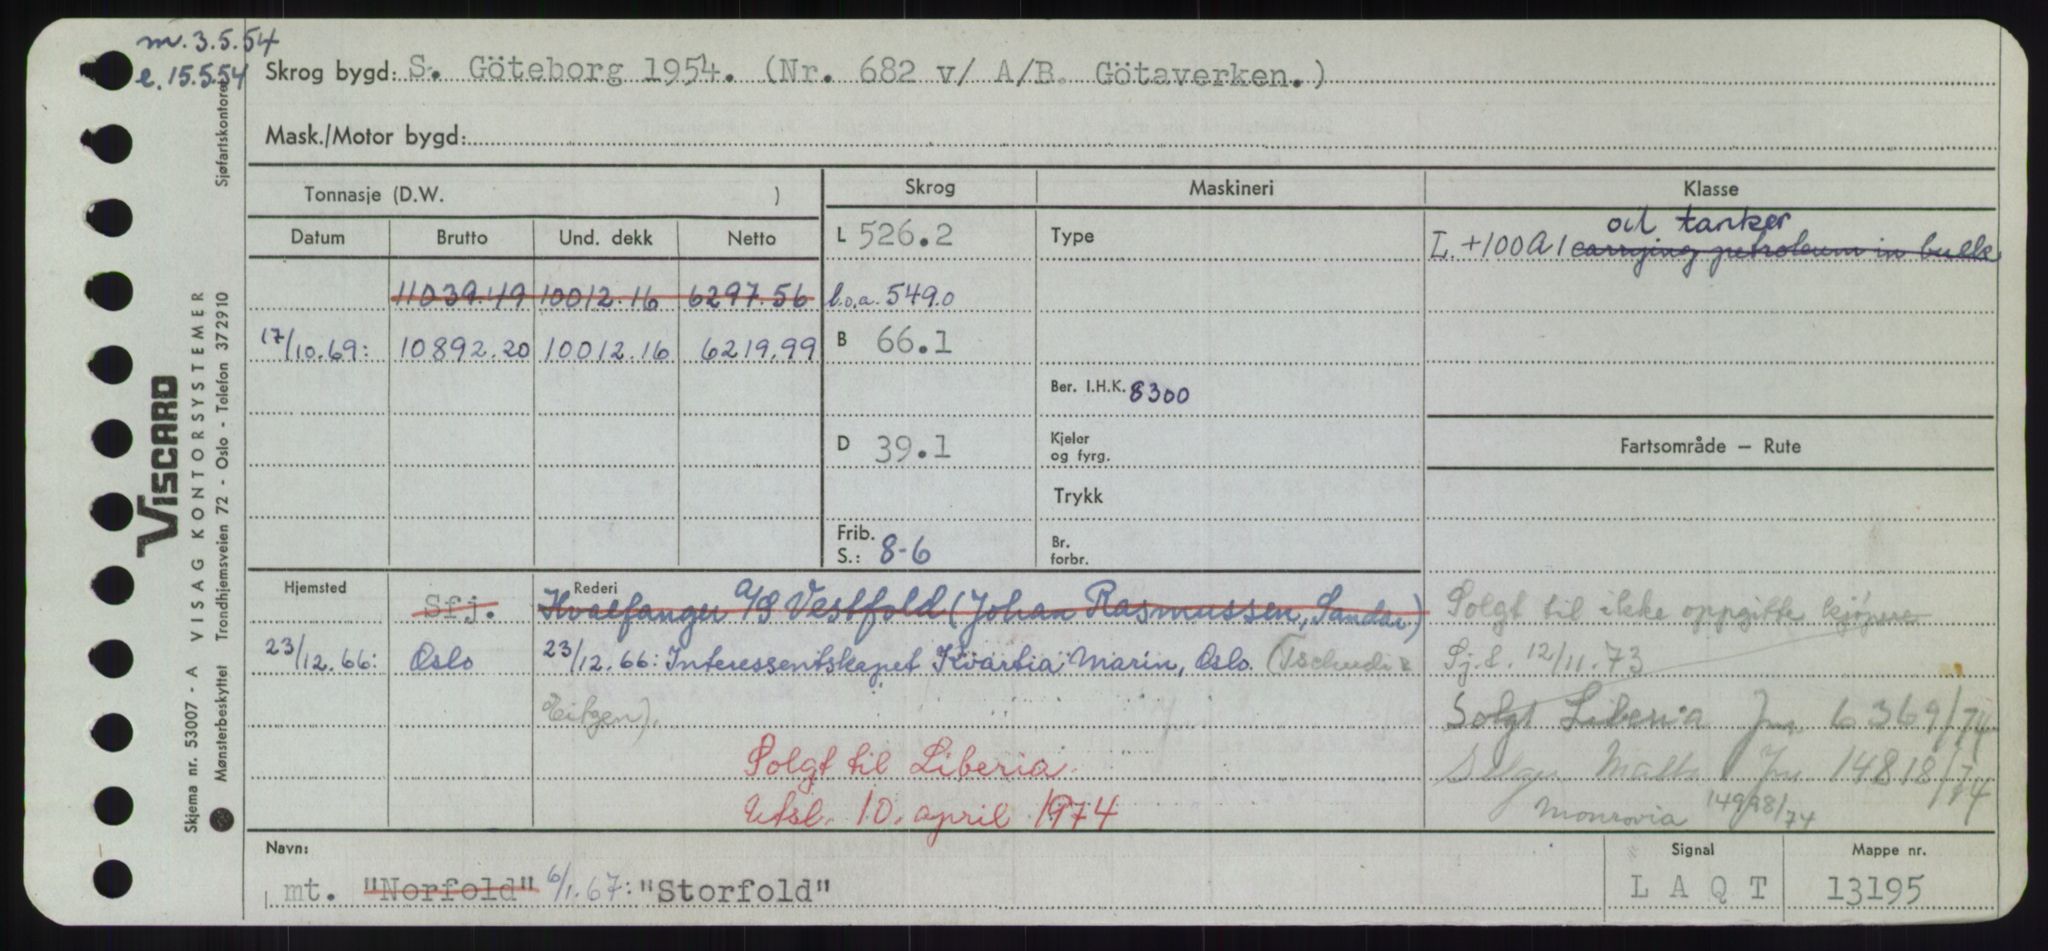 m. 3.5.54
e. 15.5.54
Skrog bygd: S. Göteborg 1954. (Nr. 682 v/ A/B. Götaverken.)
Mask./Motor bygd:
Tonnasje (D.W. )
Skrog
Maskineri
Klasse
Datum Brutto Und. dekk Netto
L 526.2
Type
oil tanker
L +100A1 carrying petroleum in bulk
11039.49 10012.16 6297.56
l.o.a. 549.0
17/10.69: 10892.20 10012.16 6219.99
B 66.1
Ber. I.H.K. 8300
D 39.1
Kjeler
og fyrg.
Fartsområde — Rute
Trykk
Frib.
S.: 8-6
Br.
forbr.
Hjemsted
Rederi
Sfj. Hvalfanger A/S Vestfold (Johan Rasmussen, Sandar)
Solgt til ikke oppgitte kjøpere
23/12.66: Oslo 23/12.66: Interessentskapet Kvartia Marin, Oslo. (Tschudi &
Sj.f. 12/11.73
Eitzen).
Solgt Liberia Jnr. 6369/74
Solgt til Liberia
Selger Malta Jnr. 14818/74
Utsl. 10. april 1974
Monrovia 14998/74
Navn:
mt. "Norfold" 6/1.67: "Storfold"
Signal
L A Q T
Mappe nr.
13195
Sjøfartskontoret
VISCARD
VISAG KONTORSYSTEMER
Trondhjemsveien 72 - Oslo - Telefon 372910
Skjema nr. 53007 - A
Mønsterbeskyttet